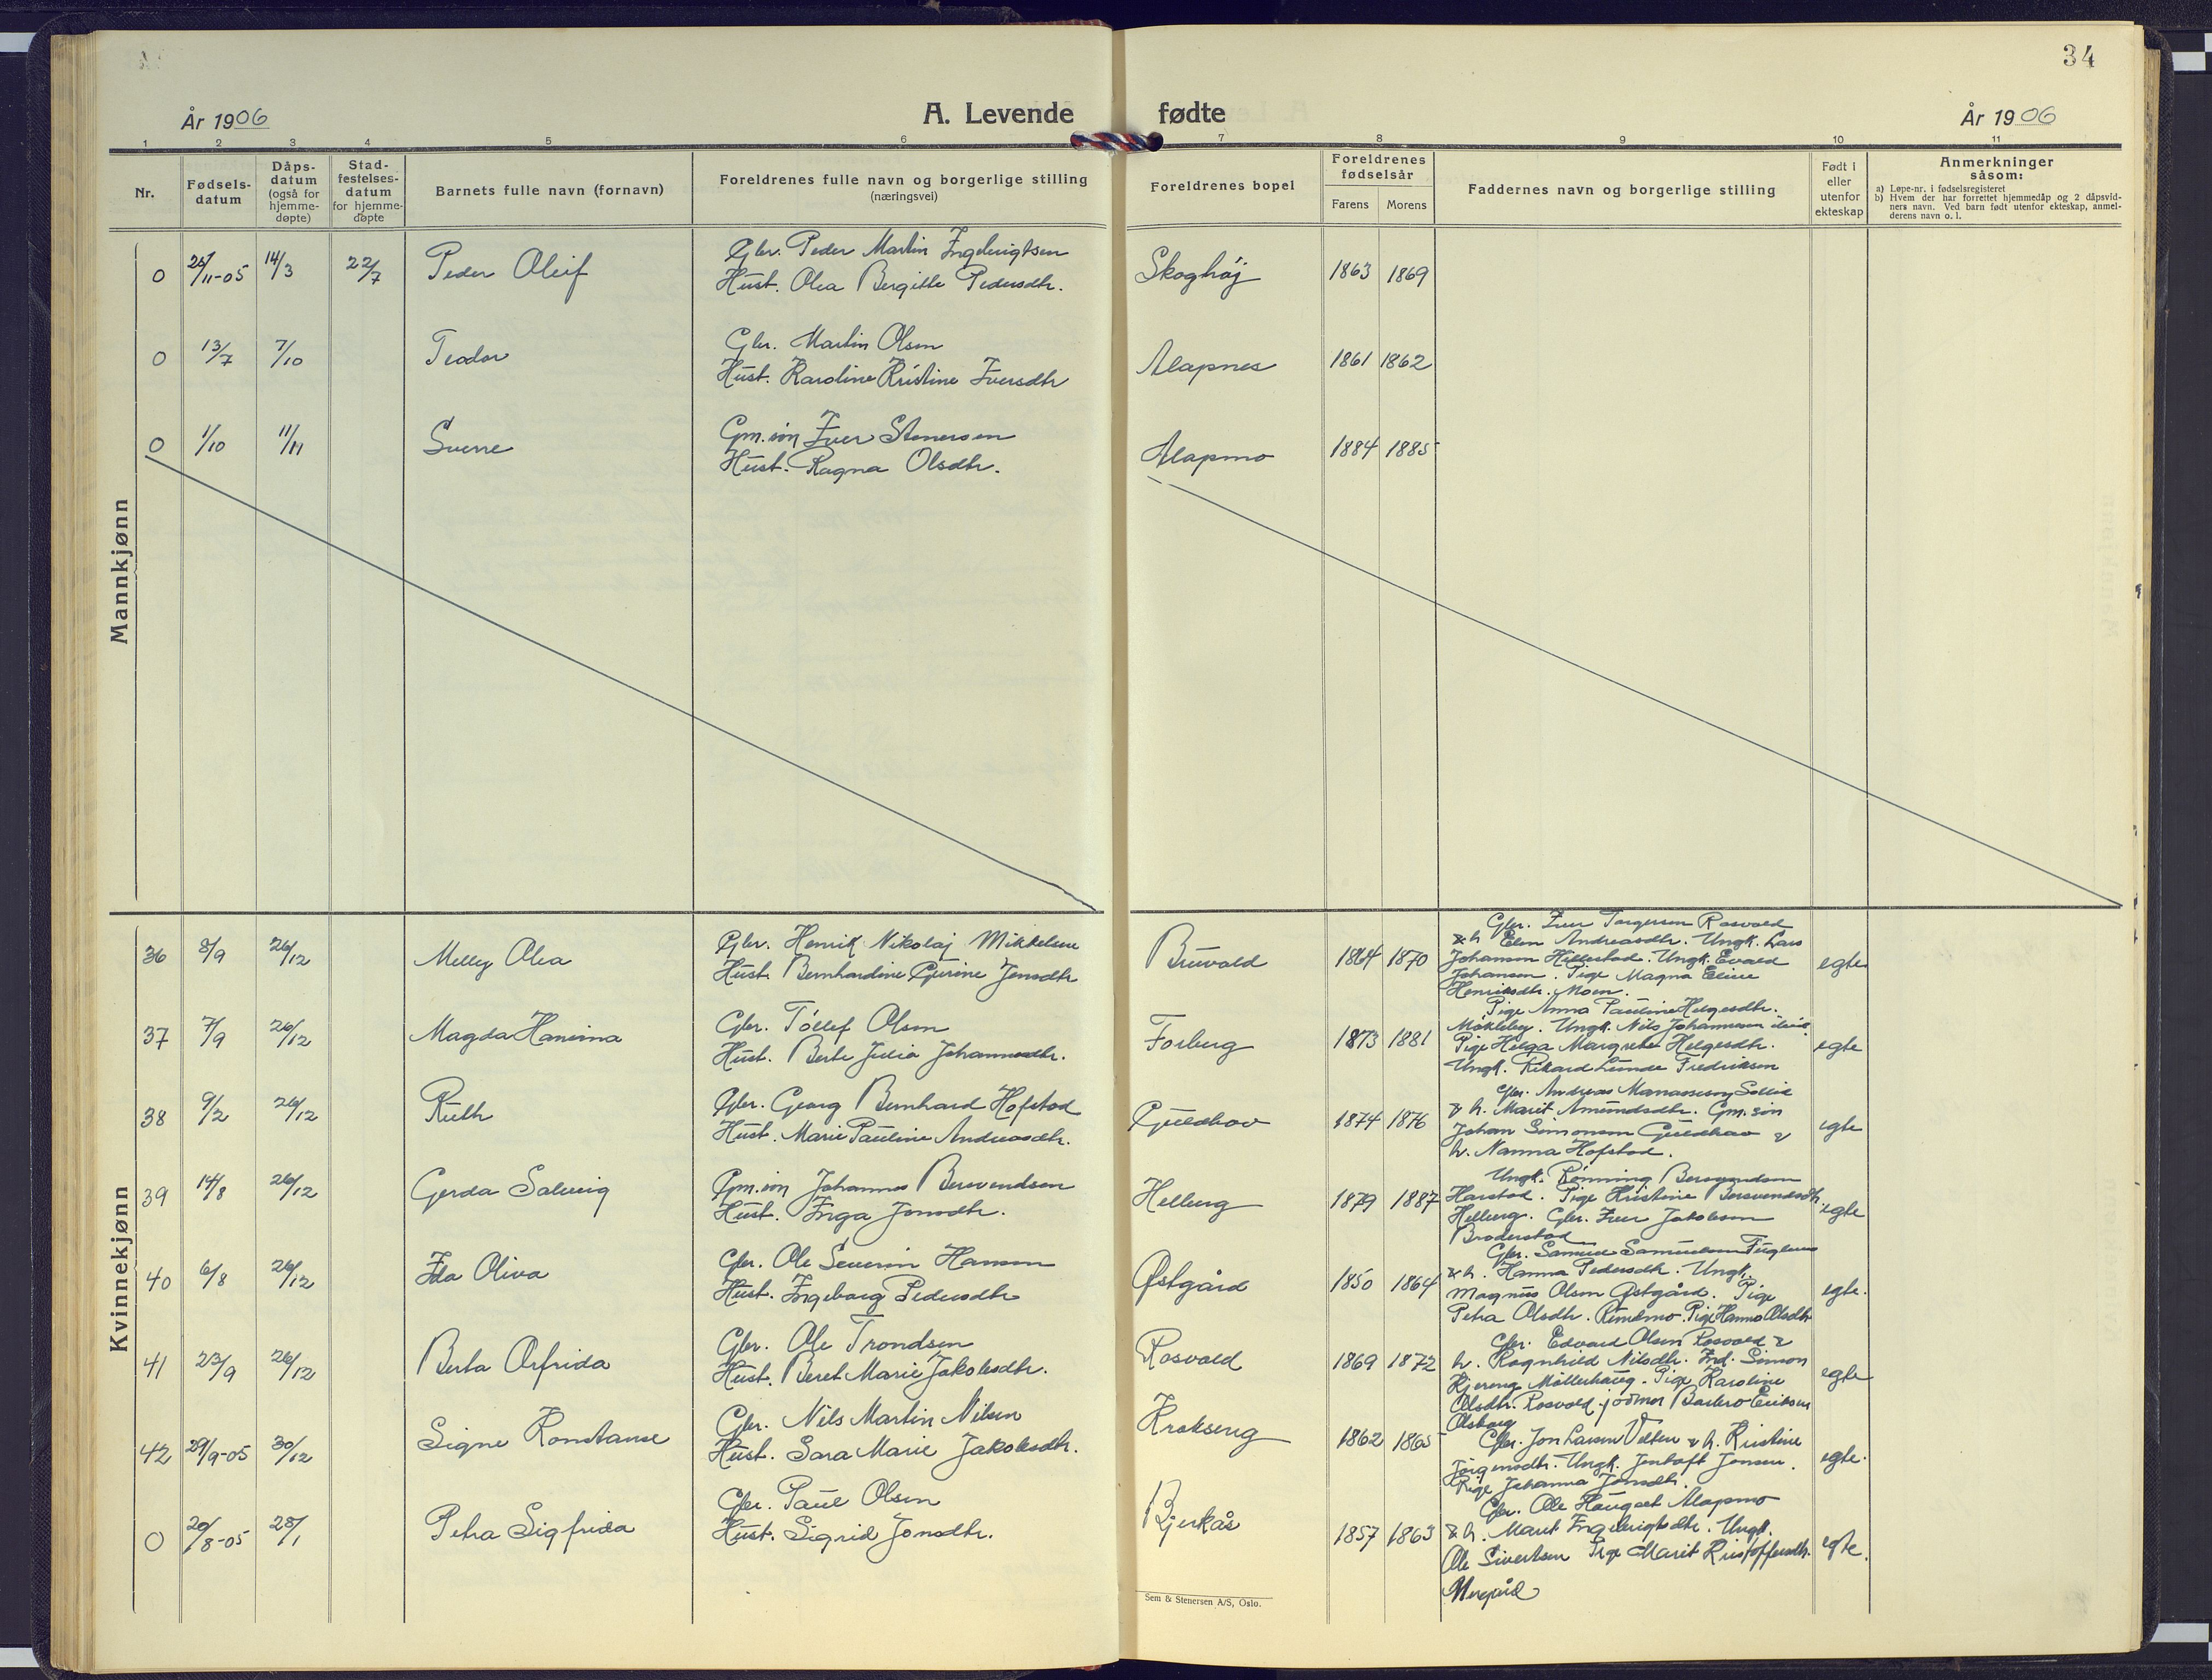 34
År 1906
A. Levende fødte
År 1906
1 2 3 4 5 6 7 8 9 10 11
Nr.
Fødsels-
datum
Dåps-
datum
(også for
hjemme-
døpte)
Stad-
festelses-
datum
for hjemme-
døpte
Barnets fulle navn (fornavn)
Foreldrenes fulle navn og borgerlige stilling
(næringsvei)
Foreldrenes bopel
Foreldrenes
fødselsår
Farens
Morens
Faddernes navn og borgerlige stilling
Født i
eller
utenfor
ekteskap
Anmerkninger
såsom:
a) Løpe-nr. i fødselsregisteret
b) Hvem der har forrettet hjemmedåp og 2 dåpsvid-
ners navn. Ved barn født utenfor ekteskap, anmel-
derens navn o. l.
Mannkjønn
0 /11-05 14/3 22/7 Peder Oleif
Gbr. Peder Martin Ingebrigtsen
Hust. Olea Bergitte Pedersdtr.
Skoghøj 1863 1869
0 13/7 7/10 Teodor
Gbr. Martin Olsen
Hust. Karoline Kristine Iversdtr
Alapnes 1861 1862
0 1/10 11/11 Sverre
Gm.søn Iver Stenersen
Hust. Ragna Olsdtr.
Alapmo 1884 1885
Kvinnekjønn
36 8/9 26/12 Melly Olea
Gbr. Henrik Nikolaj Mikkelsen
Hust. Bernhardine Gurine Jensdtr
Bruvold 1864 1870
Gbr. Iver Torgersen Rosvold
& h. Elen Andreasdtr. Ungk. Lars
Johansen Hillestad. Ungk. Evald
Johansen. Pige Magna Eline
Henriksdtr. Moen.
egte
37 7/9 26/12 Magda Hansina
Gbr. Tollef Olsen
Hust. Berte Julia Johannesdtr.
Forberg 1873 1881
Pige Anna Pauline Helgesdtr.
Mokleby. Ungk. Nils Johannesen
Pige Helga Margrete Helgesdtr.
Ungk. Rikard Lunde Fredriksen
egte
38 9/2 26/12 Ruth
Gbr. Georg Bernhard Hofstad
Hust. Marie Pauline Andreasdtr.
Guldhav 1874 1876
Gbr. Andreas Manassesen Sollid
& h. Marit Amundsdtr. Gm.søn
Johan Simonsen Guldhav &
h. Nanna Hofstad.
egte
39 14/8 26/12 Gerda Solveig
Gm.søn Johannes Bersvendsen
Hust. Inga Jonsdtr.
Helberg 1879 1887
Ungk. Rønning Bersvendsen
Harstad. Pige Kristine Bersvendsdtr.
Helberg. Gbr. Iver Jakobsen
Broderstad
egte
40 6/8 26/12 Ida Oliva
Gbr. Ole Severin Hansen
Hust. Ingeborg Pedersdtr
Østgård 1850 1864
Gbr. Samuel Samuelsen Fuglemo
& h. Hanna Pedersdtr. Ungk.
Magnus Olsen Østgård. Pige
Petra Olsdtr. Rundmo. Pige Hanna Olsdtr
egte.
41 23/9 26/12 Berta Arfrida
Gbr. Ole Trondsen
Hust. Beret Marie Jakobsdtr.
Rosvold 1869 1872
Gbr. Edvard Olsen Rosvold &
h. Ragnhild Nilsdtr. Ind. Simon
Kjereng Møllerhaug. Pige Karoline
Olsdtr. Rosvold. jordmor Barbro Eriksen
Olsborg
egte
42 29/9-05 30/12 Signe Konstanse
Gbr. Nils Martin Nilsen
Hust. Sara Marie Jakobsdtr.
Krokseng 1862 1865
Gbr. Jon Larsen Velten & h. Kristine
Jørgensdtr. Ungk. Jentoft Jonsen.
Pige Johanna Jonsdtr.
egte.
0 20/8-05 28/1 Petra Sigfrida
Gbr. Paul Olsen
Hust. Sigrid Jonsdtr.
Bjerkås 1857 1863
Gbr. Ole Hauget Alapmo
& h. Marit Ingebrigtsdtr. Ungk.
Ole Sivertsen Pige Marit Kristoffersdtr.
egte.
Sem & Stenersen A/S, Oslo.